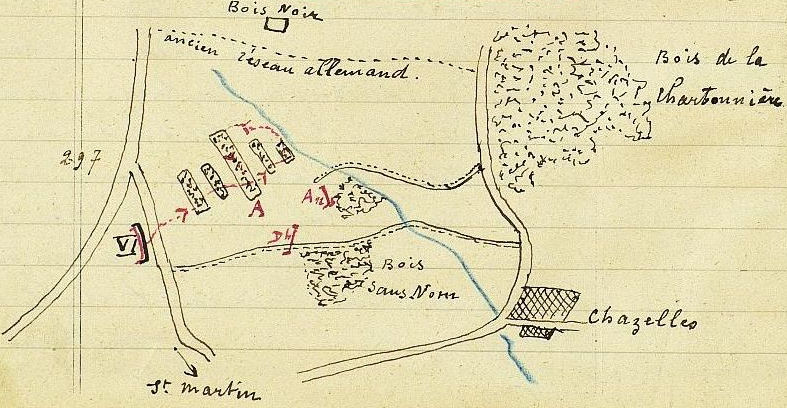 Bois Noir
ancien réseau allemand.
Bois de la
Charbonnière
297
A
VI
Bois
Sans Nom
Chazelles
St martin